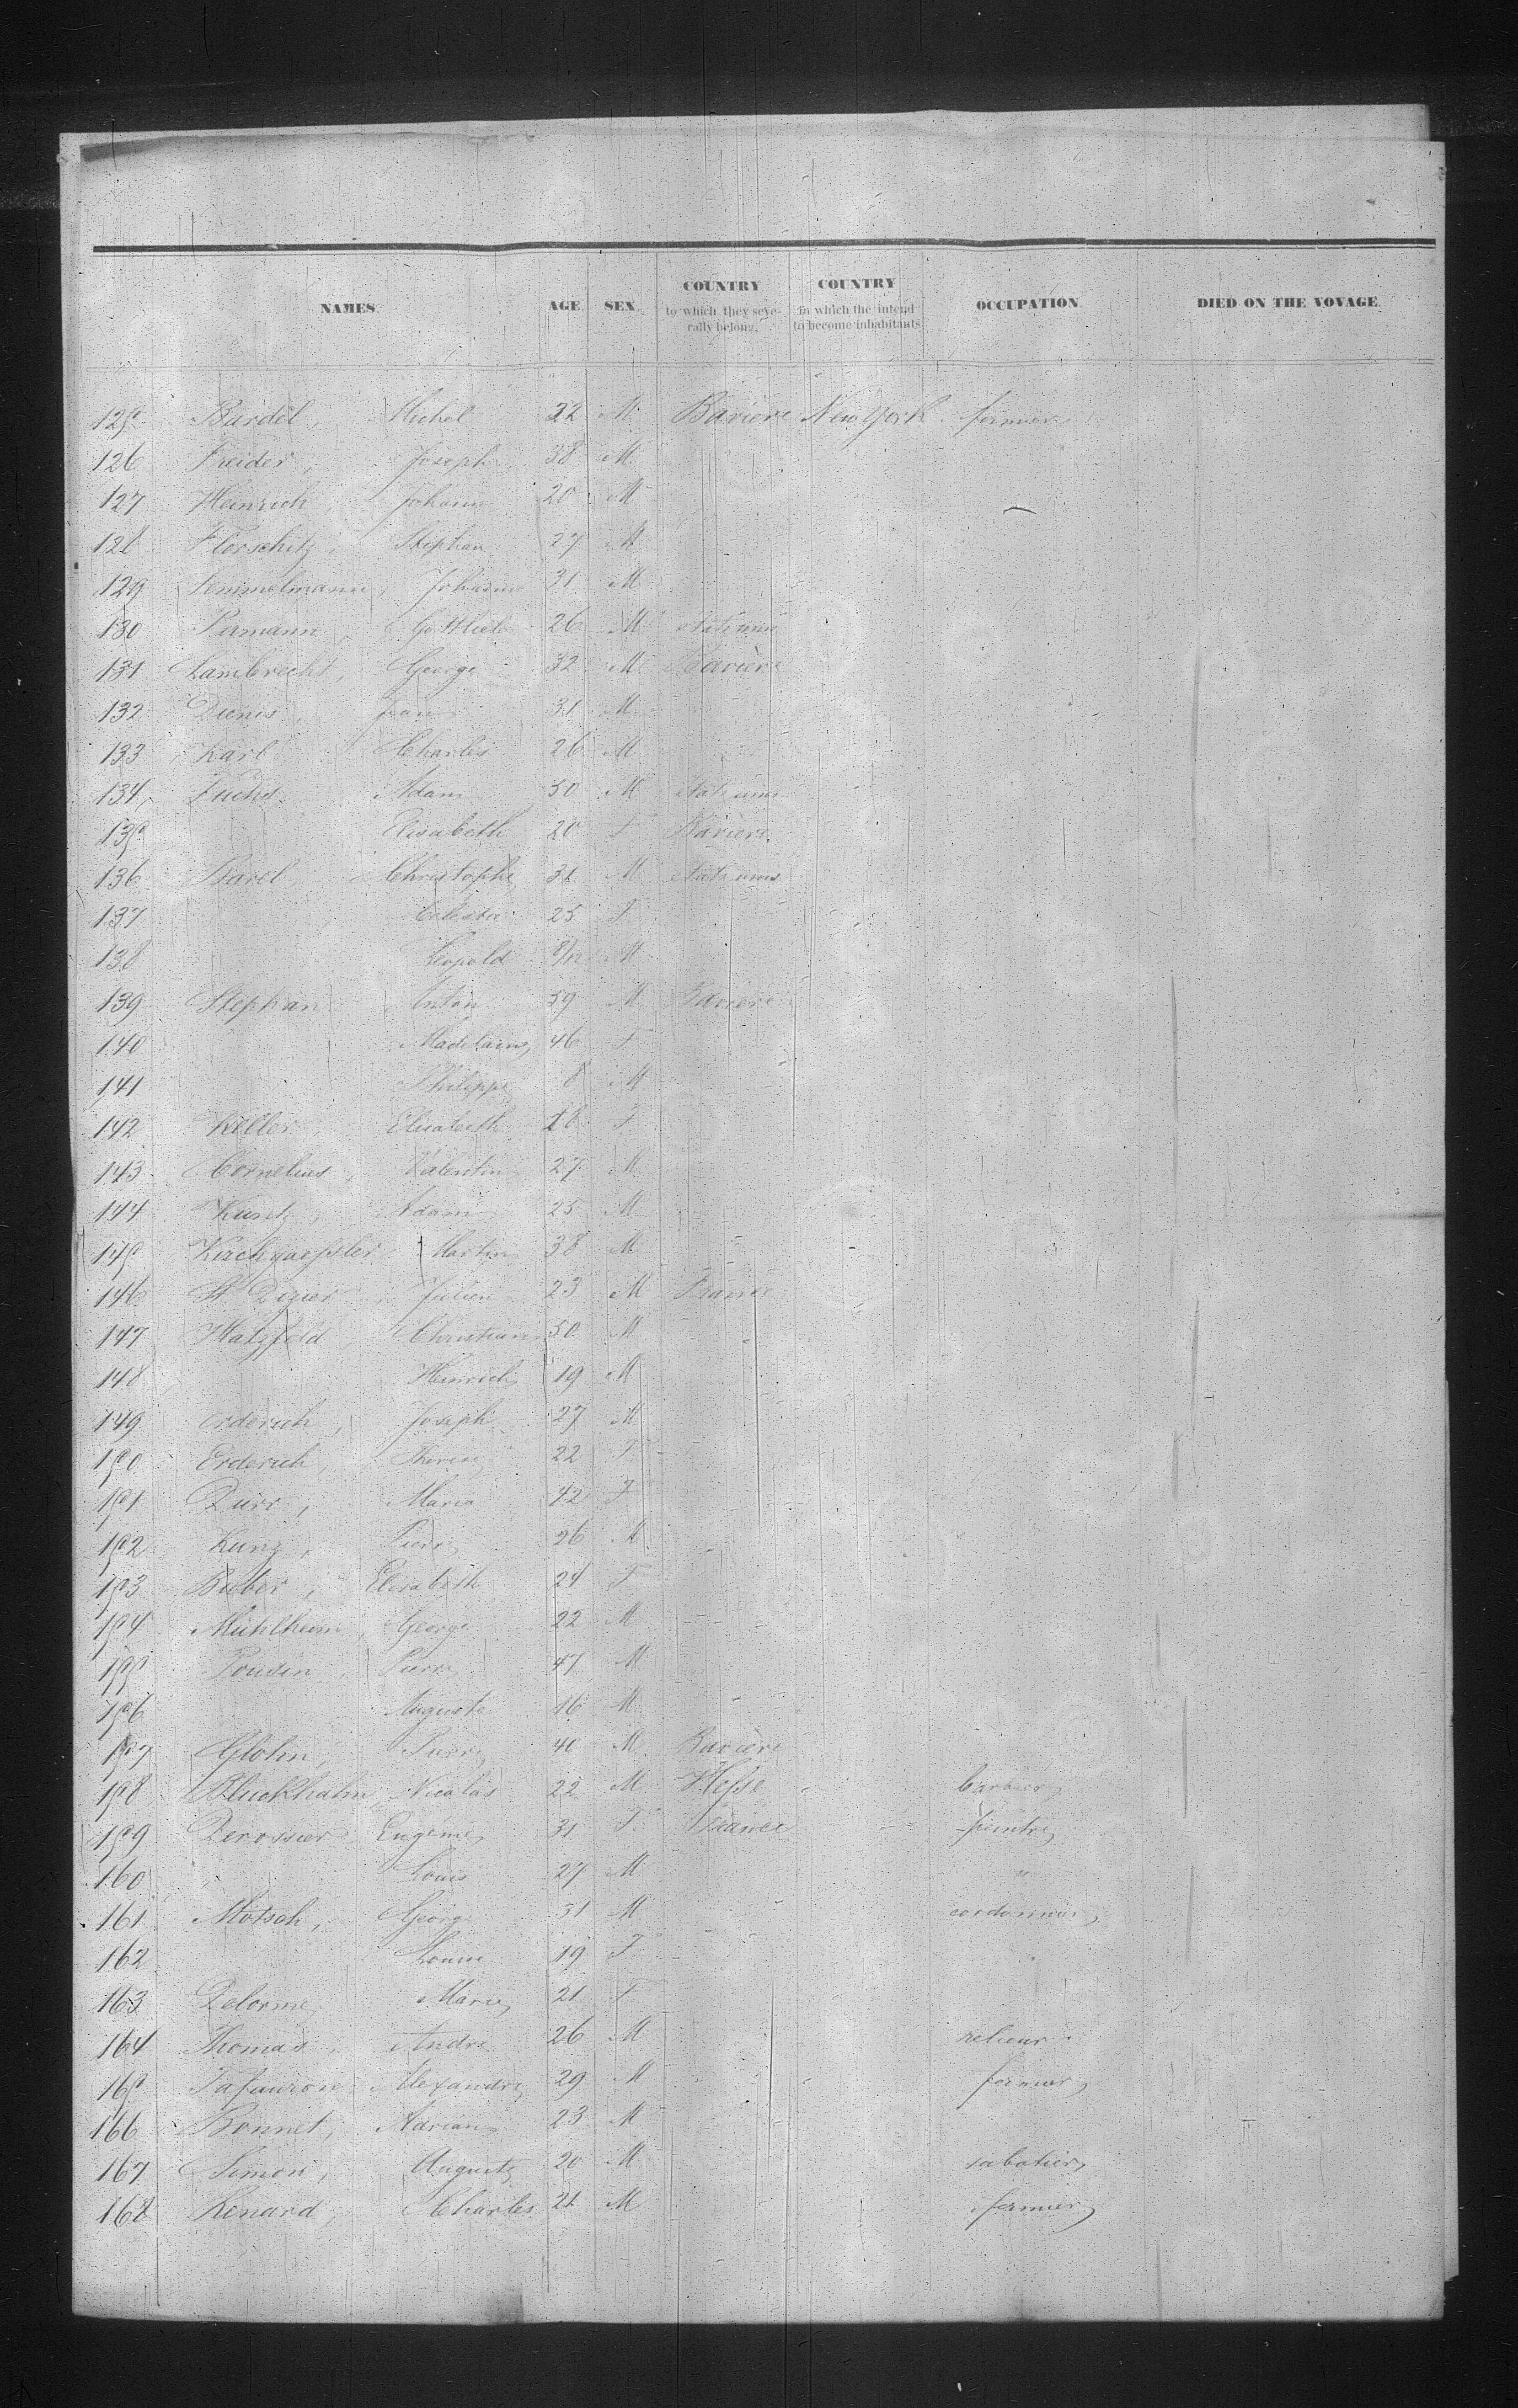 NAMES. AGE. SEX. COUNTRY to which they severally belong. COUNTRY in which the intend to become inhabitants. OCCUPATION. DIED ON THE VOYAGE.
125 Bardel, Michel 22 M Bavière New York fermier
126 Freider, Joseph 38 M
127 Heinrich, Johann 20 M
128 Florschitz, Stephan 27 M
129 Semmelmann, Johann 31 M
130 Permann Gottlieb 26 M Etats unis
131 Lambrecht, George 32 M Bavière
132 Denis, 31 M
133 Karl Charles 26 M
134 Fuchs Adam 50 M Etats unis
135 Elisabeth 20 F Bavière
136 Barel, Christophe 31 M Etats unis
137 25 F
138 Leopold 8/12 M
139 Stephan Anton 59 M Bavière
140 Madelaine, 46 F
141 Philippe 8 M
142 Keller, Elisabeth 18 F
143 Cornelius, Valentin 27 M
144 Kuntz, Adam 25 M
145 Kirchgaessler Martin 38 M
146 St Dizier, Julien 23 M France
147 Hatzfeld, Christian 50 M
148 Heinrich, 19 M
149 Erderich, Joseph 27 M
150 Erderich, Therese 22 F
151 Durr, Maria 42 F
152 Kunz, Pierre 26 M
153 Bieber, Elisabeth 24 F
154 Mühlheim, George 22 M
155 Pousin, Pierre 47 M
156 Auguste 16 M
157 Glohn, Pierre 40 M Bavière
158 Bluckhahn, Nicolas 22 M Hesse barbier
159 Derossier Eugenie 31 F France peintre
160 Louis 27 M "
161 Motsch, George 31 M cordonnier,
162 Louise 19 F
163 Delorme, Marie 21 F
164 Thomas, Andre 26 M relieur
165 Lafauron, Alexandre 29 M fermier
166 Bonnet, Adrian 23 M
167 Simon, Auguste 20 M sabotier
168 Renard, Charles 21 M fermier